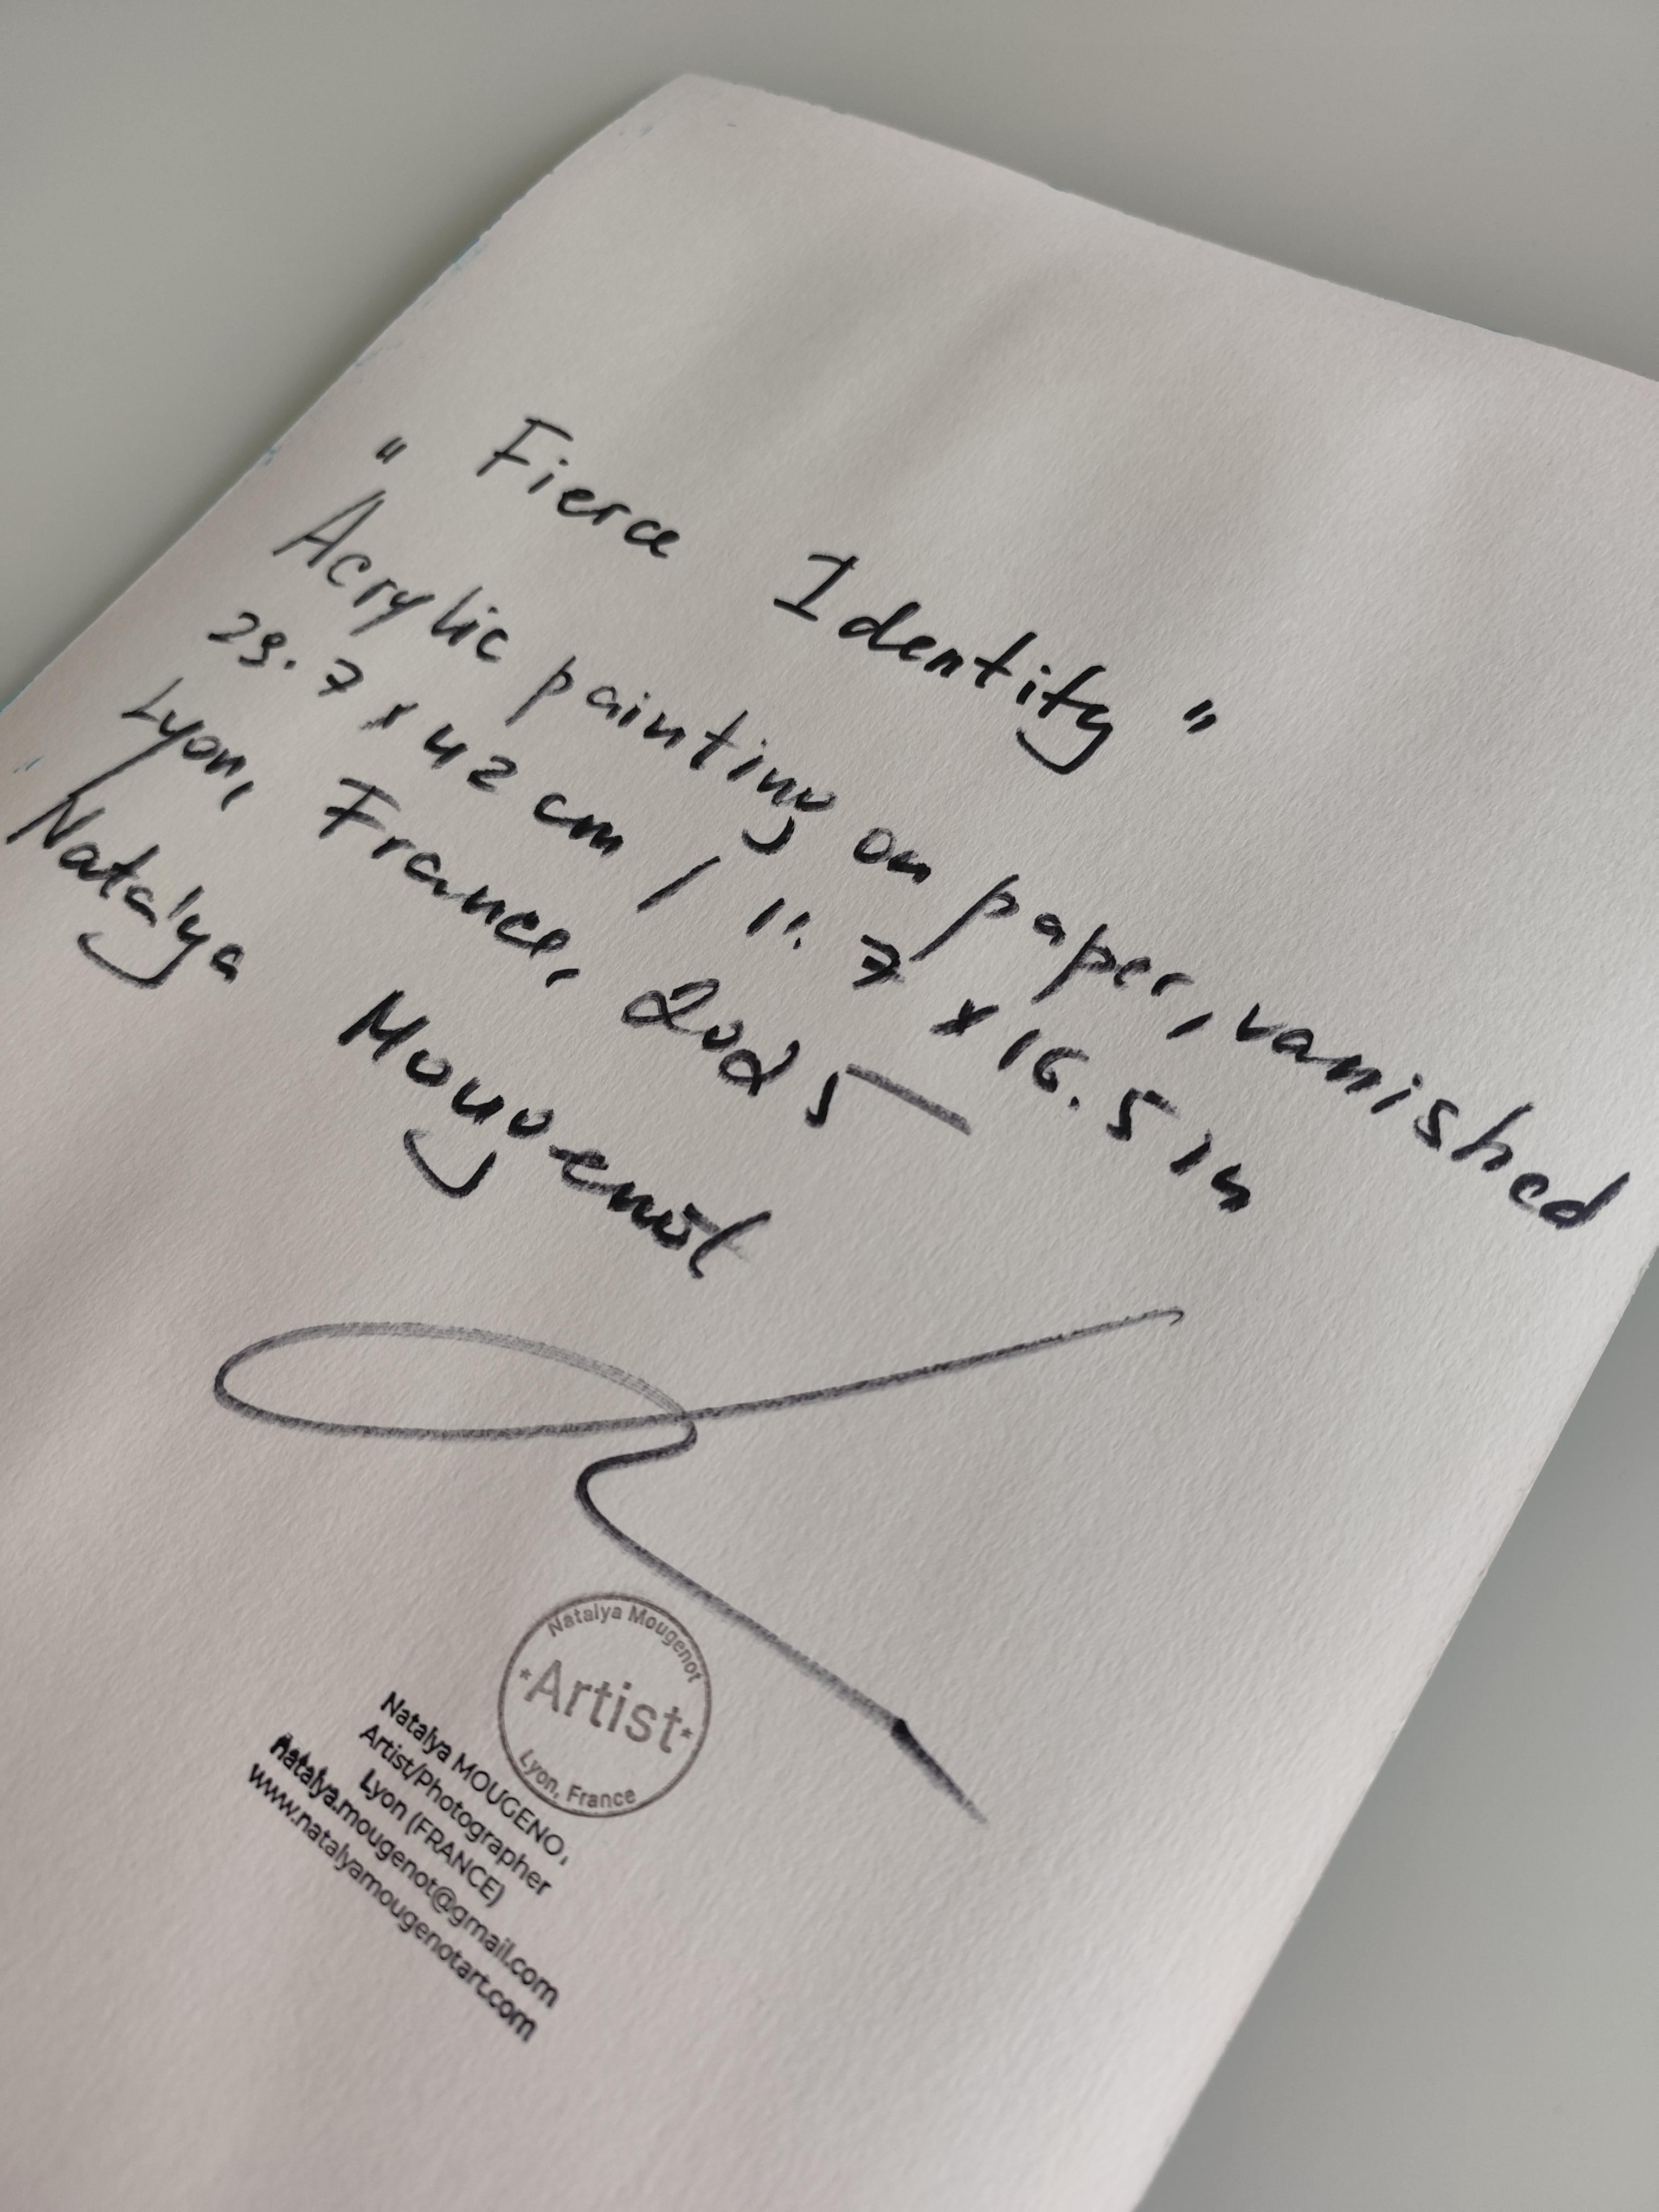 " Fierce Identity "
Acrylic painting on paper, vanished
29.7 x 42 cm / 11.7 x 16.5 in
Lyon, France, 2025
Natalya Mougenot
Natalya Mougenot
*Artist*
Lyon, France
Natalya MOUGENO
Artist/Photographer
Lyon (FRANCE)
natalya.mougenot@gmail.com
www.natalyamougenotart.com